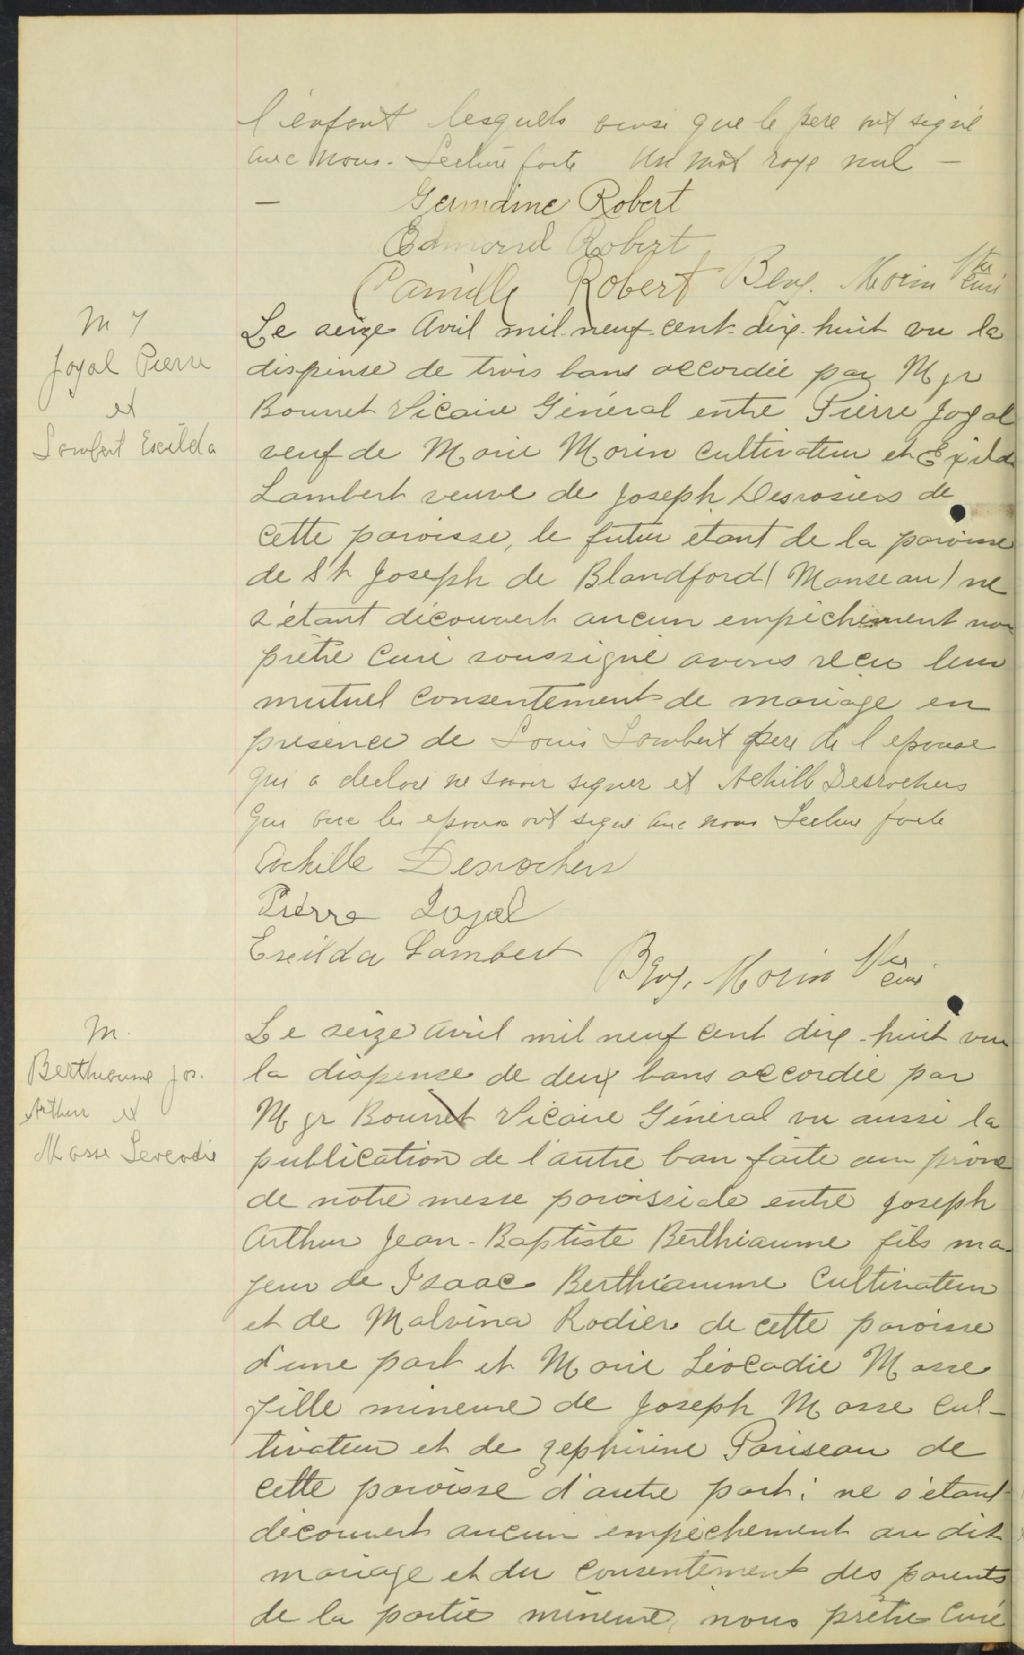 l'enfant lesquels ainsi que le père ont signé
avec nous. Lecture faite Un mot rayé nul —
— Germaine Robert
Edmond Robert
Camille Robert Benj. Morin Ptre curé
M 7
Joyal Pierre
et
Lambert Exilda
Le seize Avril mil neuf cent dix huit vu la
dispense de trois bans accordée par Mgr
Bourret Vicaire Général entre Pierre Joyal
veuf de Marie Morin cultivateur et Exilda
Lambert veuve de Joseph Desrosiers de
cette paroisse, le futur étant de la paroisse
de St Joseph de Blandford (Manseau) ne
s'étant découvert aucun empêchement nous
prêtre curé soussigné avons reçu leur
mutuel consentement de mariage en
présence de Louis Lambert père de l'épouse
qui a déclaré ne savoir signer et Achille Desrochers
qui avec les époux ont signé avec nous Lecture faite
Achille Desrochers
Pierre Joyal
Exilda Lambert Benj. Morin Ptre curé
M.
Berthiaume Jos.
Arthur et
Masse Leocadie
Le seize avril mil neuf cent dix-huit vu
la dispense de deux bans accordée par
Mgr Bourret Vicaire Général vu aussi la
publication de l'autre ban faite au prône
de notre messe paroissiale entre Joseph
Arthur Jean-Baptiste Berthiaume fils ma-
jeur de Isaac Berthiaume cultivateur
et de Malvina Rodier de cette paroisse
d'une part et Marie Léocadie Masse
fille mineure de Joseph Masse cul-
tivateur et de Zephirine Pariseau de
cette paroisse d'autre part; ne s'étant
découvert aucun empêchement au dit
mariage et du consentement des parents
de la partie mineure, nous prêtre curé